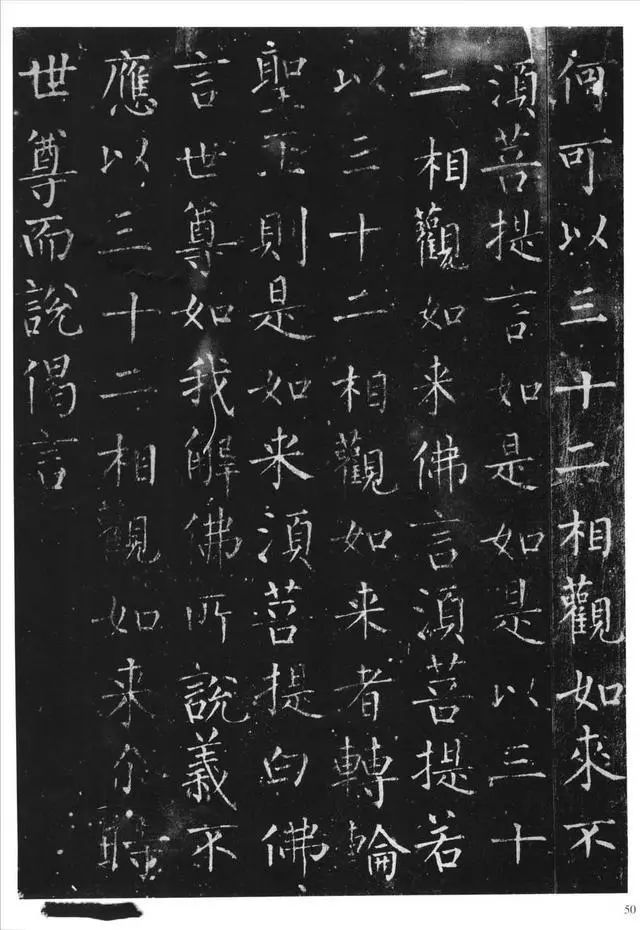 何可以三十二相觀如來不
須菩提言如是如是以三十
二相觀如来佛言須菩提若
以三十二相觀如来者轉輪
聖王則是如来須菩提白佛
言世尊如我解佛所說義不
應以三十二相觀如来尒時
世尊而說偈言
50